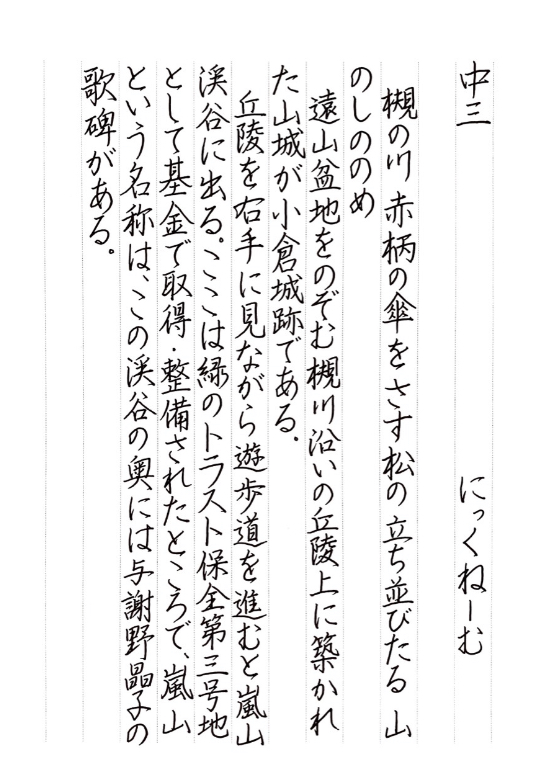 中三　にっくねーむ
槻の川　赤柄の傘をさす松の　立ち並びたる　山
のしののめ
遠山盆地をのぞむ槻川沿いの丘陵上に築かれ
た山城が小倉城跡である。
丘陵を右手に見ながら遊歩道を進むと嵐山
渓谷に出る。ここは緑のトラスト保全第三号地
として基金で取得・整備されたところで、嵐山
という名称は、この渓谷の奥には与謝野晶子の
歌碑がある。